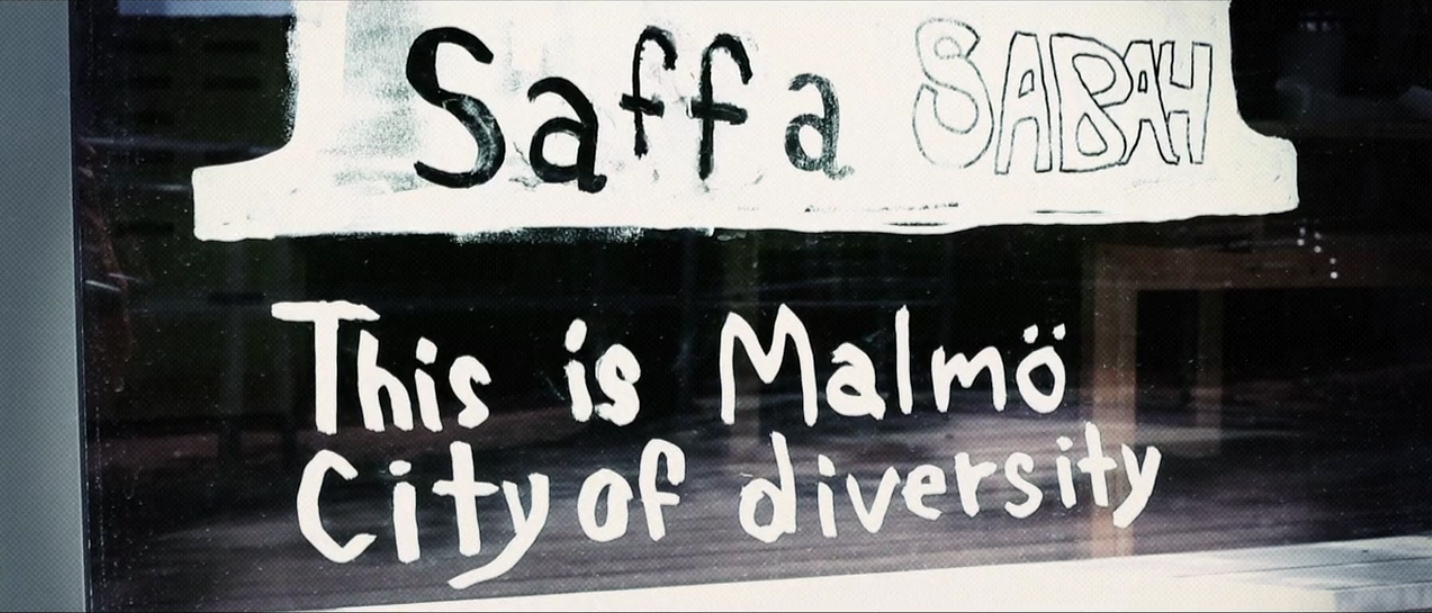 Saffa SABAH
This is Malmö
City of diversity